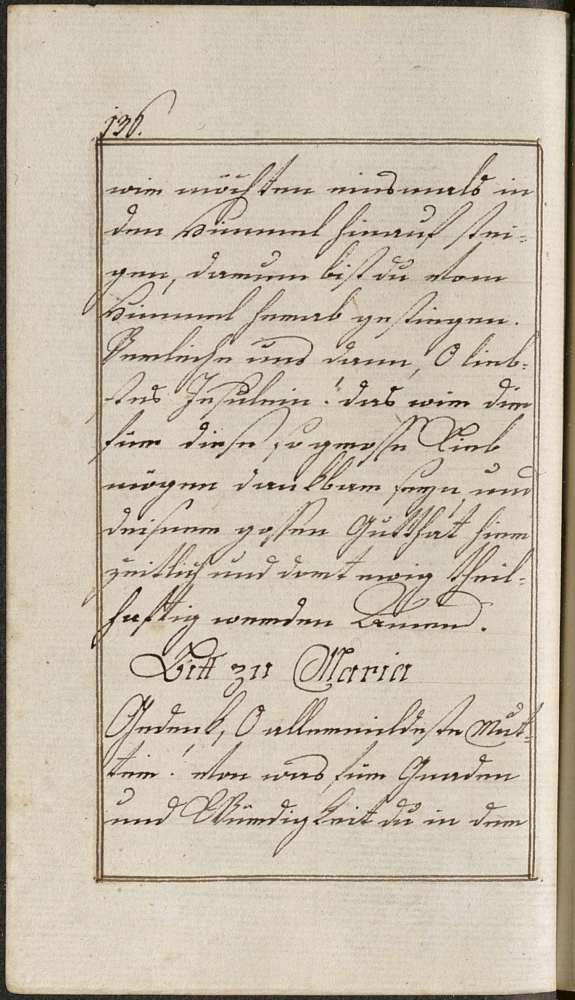 136.
wir möchten einsmals in
den Himmel hinauf stei-
gen, darum bist du vom
Himmel herab gestiegen.
Verleihe uns dann, O lieb-
stes Jesulein! das wir dir
für diese so grosse Lieb
mögen danckbar seyn, und
deisner gossen Gutthat hier
zeitlich und dort ewig theil-
hafftig werden Amen.
Bitt zu Maria
Gedenk, O allermildeste Mut-
ter! von was für Gnaden
und Würdigkeit du in dem